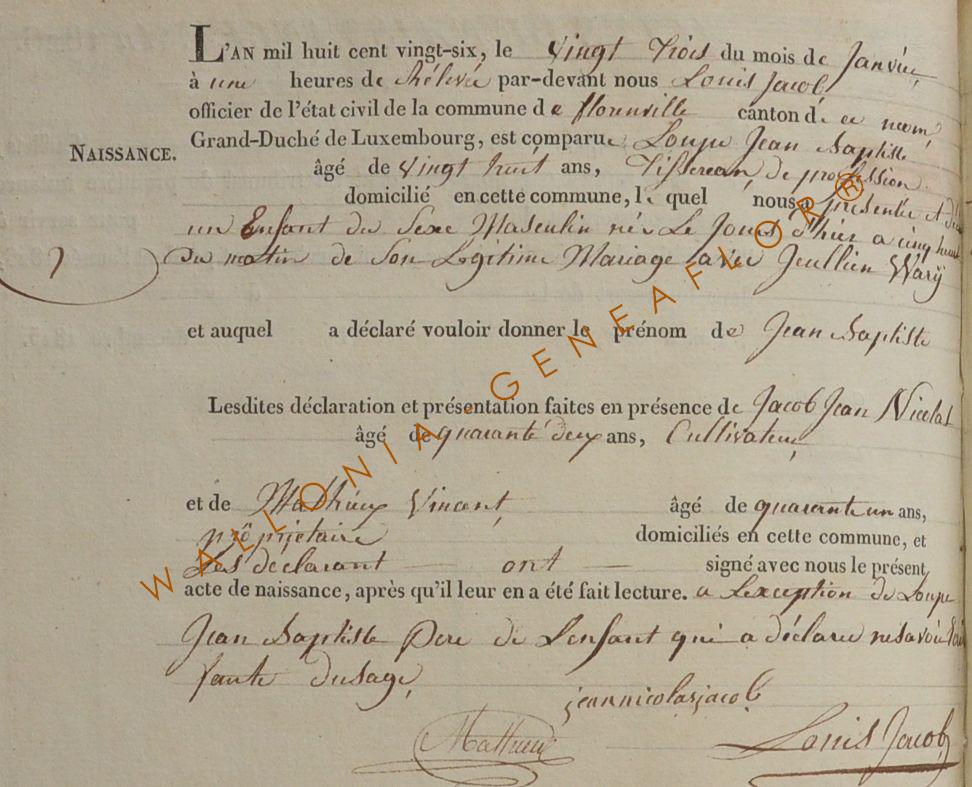 L'AN mil huit cent vingt-six, le vingt trois du mois de Janvier
à une heures de Rélevée par-devant nous Louis Jacob
officier de l'état civil de la commune de florenville canton de ce nom
Grand-Duché de Luxembourg, est comparue Loupe Jean Baptiste
NAISSANCE. âgé de vingt huit ans, Tisseran de profession
domicilié en cette commune, le quel nous a présentée et
un Enfant du Sexe Masculin née Le Jours D'hier a cinq heur
7 Du matin de Son Légitime Mariage avec Jeullien Wary
et auquel a déclaré vouloir donner le prénom de Jean Baptiste
Lesdites déclaration et présentation faites en présence de Jacob Jean Nicolas
âgé de quarante deux ans, Cultivateur
et de Mathieux Vincent, âgé de quarante un ans,
propriétaire domiciliés en cette commune, et
Les declarant ont signé avec nous le présent
acte de naissance, après qu'il leur en a été fait lecture. a Lexception de Loupe
Jean Baptiste Pere de Lenfant qui a déclaré ne savoir
fante dusage
jean nicolas jacob
Mathieu Louis Jacob
WALLONIA-GENEAFLOR®